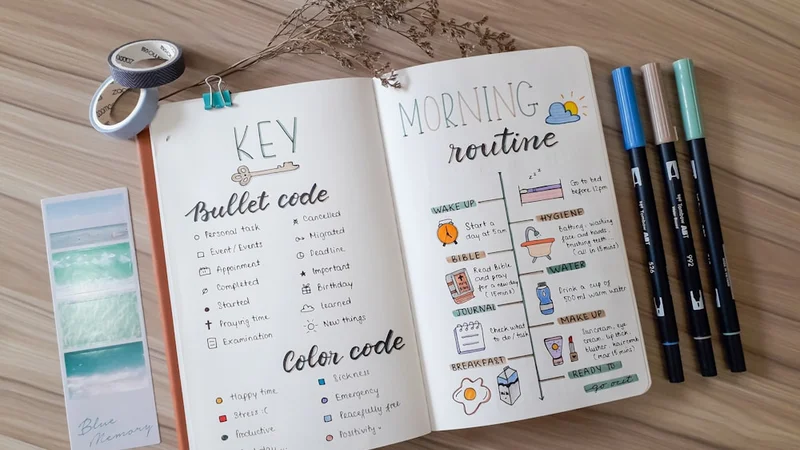 KEY
Bullet code
Personal task
Event / Events
Appoinment
Completed
Started
Praying time
Examination
Cancelled
Migrated
Deadline
Important
Birthday
Learned
New things
Color code
Happy time
Stress :(
Productive
Sickness
Emergency
Peacefully free
Positivity
MORNING
routine
zzz
Go to bed
before 12pm
WAKE UP
Start a
day at 5am
HYGIENE
Bathing, washing
face and hands,
brushing teeth
BIBLE
Read Bible
and pray
for a new day
(15 mins)
WATER
Drink a cup of
500ml warm water
JOURNAL
Check what
to do / task
MAKE UP
Suncream, eye
cream, lip stick,
blusher, haircomb
BREAKFAST
READY TO
go out
Blue
Memory
526
992
ABT
ABT